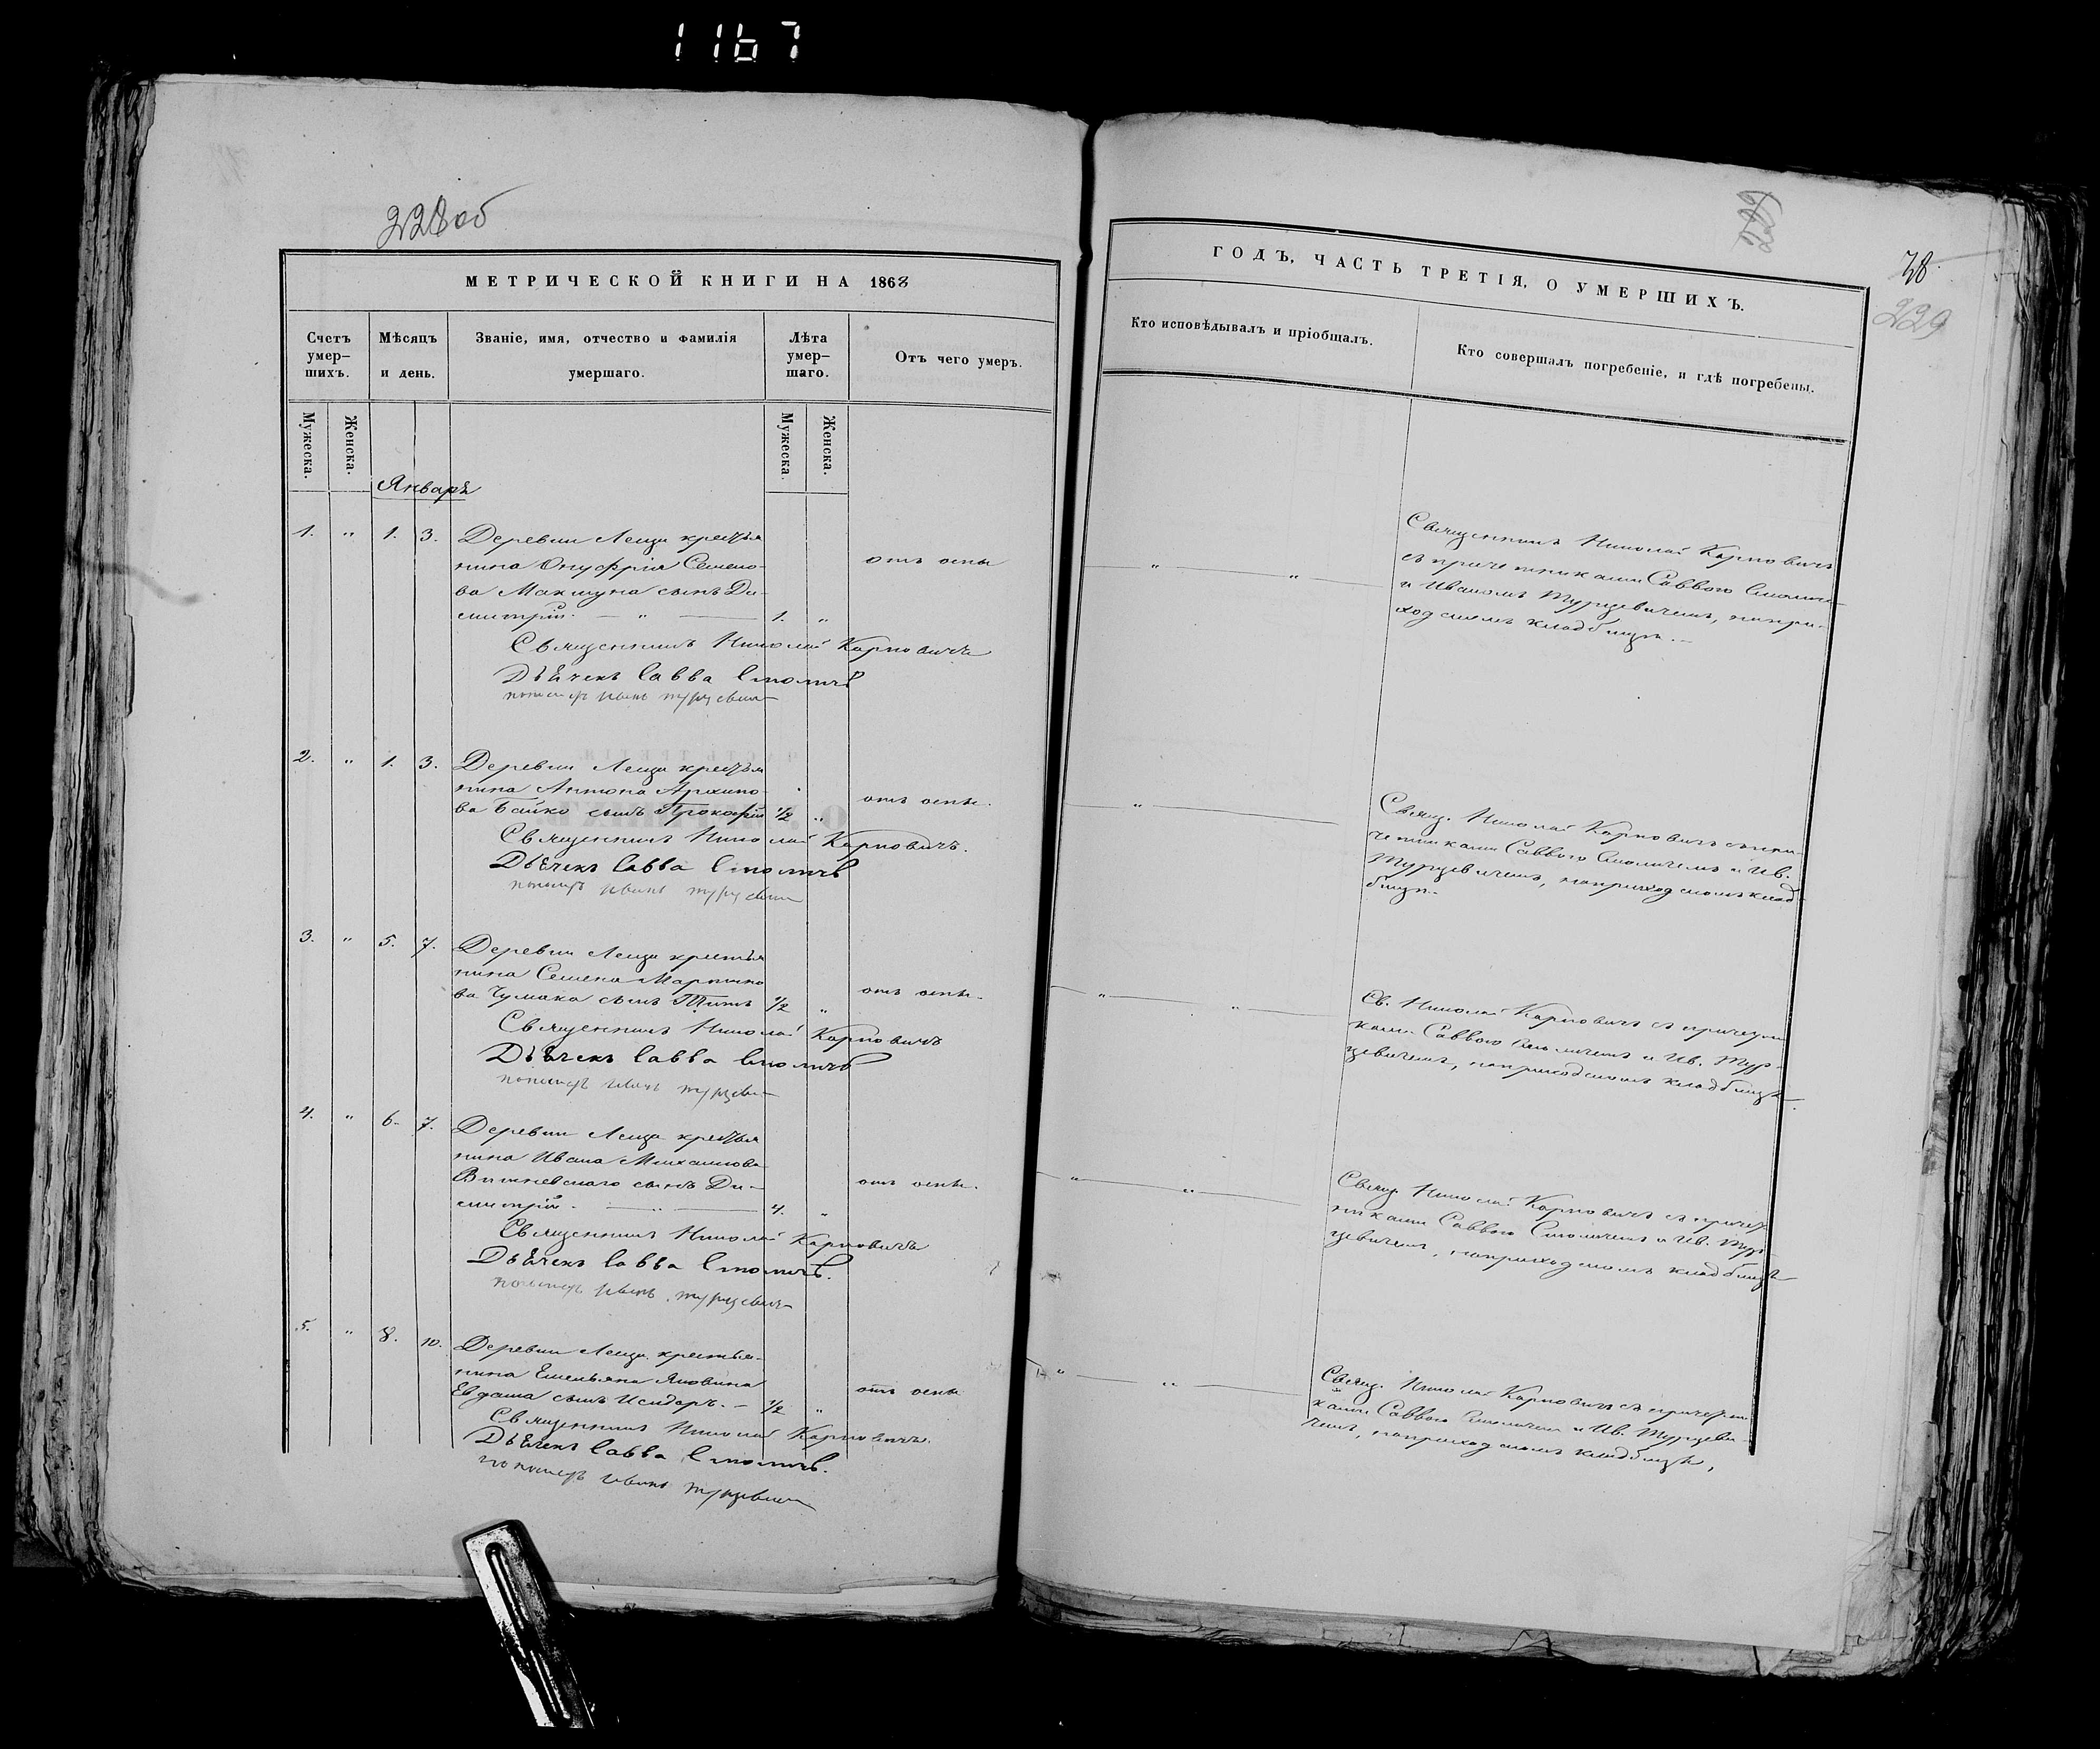 1167
228об
МЕТРИЧЕСКОЙ КНИГИ НА 1863
Счетъ умер-шихъ.
Мѣсяцъ и день.
Званіе, имя, отчество и фамилія умершаго.
Лѣта умер-шаго.
Отъ чего умеръ.
Мужеска.
Женска.
Мужеска.
Женска.
Январь
1. " 1. 3. Деревни Лещи крестья
нина Онуфрія Семено-
ва Макщуна сынъ Ди-
митрій. — " — 1. "
отъ оспы
Священникъ Николай Карповичъ
Дьячекъ Савва Смоличъ
пономарь Иванъ Турцевич
2. " 1. 3. Деревни Лещи крестья
нина Антона Архипо-
ва Байко сынъ Прокофій 1/2 "
отъ оспы.
Священникъ Николай Карповичъ.
Дьячекъ Савва Смоличъ
пономарь Иванъ Турцевич
3. " 5. 7. Деревни Лещи крестья
нина Семена Мартино
ва Чумака сынъ Титъ 1/2 "
отъ оспы.
Священникъ Николай Карповичъ
Дьячекъ Савва Смоличъ
пономарь Иванъ Турцевич
4. " 6. 7. Деревни Лещи крестья
нина Ивана Михаилова
Вишневскаго сынъ Ди-
митрій. — " — 4. "
отъ оспы.
Священникъ Николай Карповичъ
Дьячекъ Савва Смоличъ.
пономарь Иванъ Турцевич
5. " 8. 10. Деревни Лещи крестья-
нина Емельяна
сынъ Исидоръ. — 1/2 "
отъ оспы
Священникъ Николай Карповичъ.
Дьячекъ Савва Смоличъ.
пономарь Иванъ Турцевич
229
38.
229
ГОДЪ, ЧАСТЬ ТРЕТІЯ, О УМЕРШИХЪ.
Кто исповѣдывалъ и пріобщалъ.
Кто совершалъ погребеніе, и гдѣ погребены.
Священникъ Николай Карповичъ
съ причетниками Саввою Смоличе-
и Иваномъ Турцевичемъ, напри-
ходскомъ кладбищѣ.—
Свящ. Николай Карповичъ съ при-
четниками Саввою Смоличемъ и Ив.
Турцевичемъ, наприходскомъ клад-
бищѣ.
Св. Николай Карповичъ съ причетни
ками Саввою Смоличемъ и Ив. Тур-
цевичемъ, наприходскомъ кладбищѣ.
Свящ. Николай Карповичъ съ причет
никами Саввою Смоличемъ и Ив. Тур-
цевичемъ, наприходскомъ кладбищѣ
Свящ. Николай Карповичъ съ причетни
ками Саввою Смоличемъ и Ив. Турцеви-
чемъ, наприходскомъ кладбищѣ,